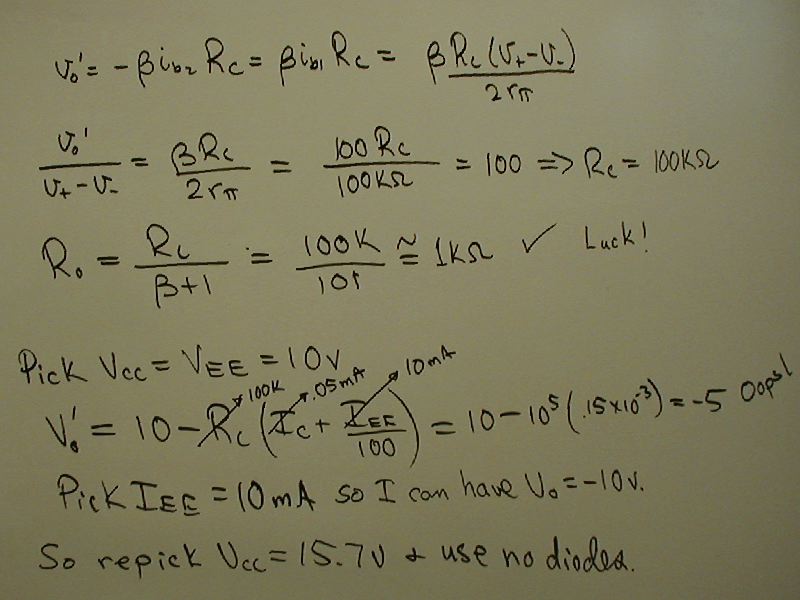 v₀' = -βi_b2 R_C = βi_b1 R_C = βR_C(v₊-v₋) / 2rπ
v₀' / (v₊-v₋) = βR_C / 2rπ = 100R_C / 100KΩ = 100 => R_C = 100KΩ
R₀ = R_C / β+1 = 100K / 101 ≅ 1KΩ ✓ Luck!
Pick V_CC = V_EE = 10V
V₀' = 10 - R_C↗100K (I_C↗.05mA + I_EE↗10mA / 100) = 10 - 10⁵(.15×10⁻³) = -5 Oops!
Pick I_EE = 10mA so I can have V₀ = -10V.
So repick V_CC = 15.7V & use no diodes.